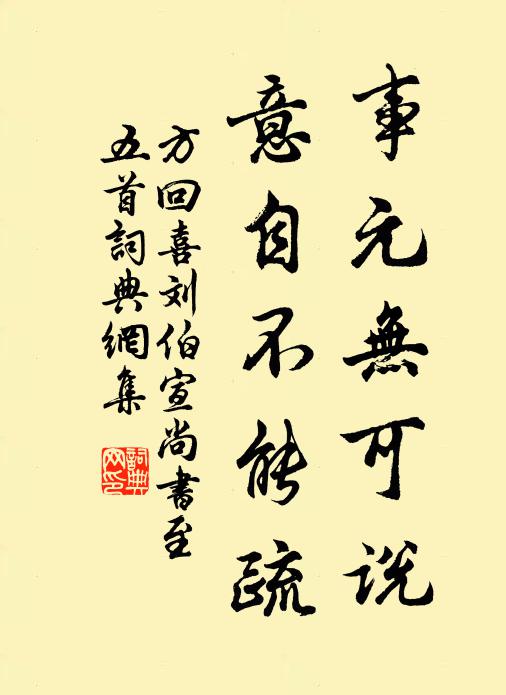 事元無可說
意自不能疏
方回喜刘伯宣尚書至
五首詞典網集
詞典
网印